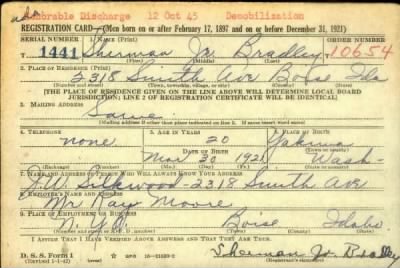 Honorable Discharge 12 Oct 45 Demobilization
REGISTRATION CARD—(Men born on or after February 17, 1897 and on or before December 31, 1921)
SERIAL NUMBER 1. NAME (Print) ORDER NUMBER
1441 Sherman Jr. Bradley 10654
(First) (Middle) (Last)
2. PLACE OF RESIDENCE (Print)
2318 Smith Ave Boise Ida
(Number and street) (Town, township, village, or city) (County) (State)
[THE PLACE OF RESIDENCE GIVEN ON THE LINE ABOVE WILL DETERMINE LOCAL BOARD
JURISDICTION; LINE 2 OF REGISTRATION CERTIFICATE WILL BE IDENTICAL]
3. MAILING ADDRESS
Same
[Mailing address if other than place indicated on line 2. If same insert word same]
4. TELEPHONE 5. AGE IN YEARS 6. PLACE OF BIRTH
none 20 Yakima
DATE OF BIRTH
Mar 30 1921 Wash-
(Exchange) (Number) (Mo.) (Day) (Yr.) (State or country)
7. NAME AND ADDRESS OF PERSON WHO WILL ALWAYS KNOW YOUR ADDRESS
J.W. Silkwood-2318 Smith Ave
8. EMPLOYER'S NAME AND ADDRESS
Mr Ray Moore
9. PLACE OF EMPLOYMENT OR BUSINESS
Boise Idaho
(Number and street or R. F. D. number) (Town) (County) (State)
I AFFIRM THAT I HAVE VERIFIED ABOVE ANSWERS AND THAT THEY ARE TRUE.
D. S. S. Form 1 Sherman Jr. Bradley
(Revised 1-1-42) (over) 16—21630-2